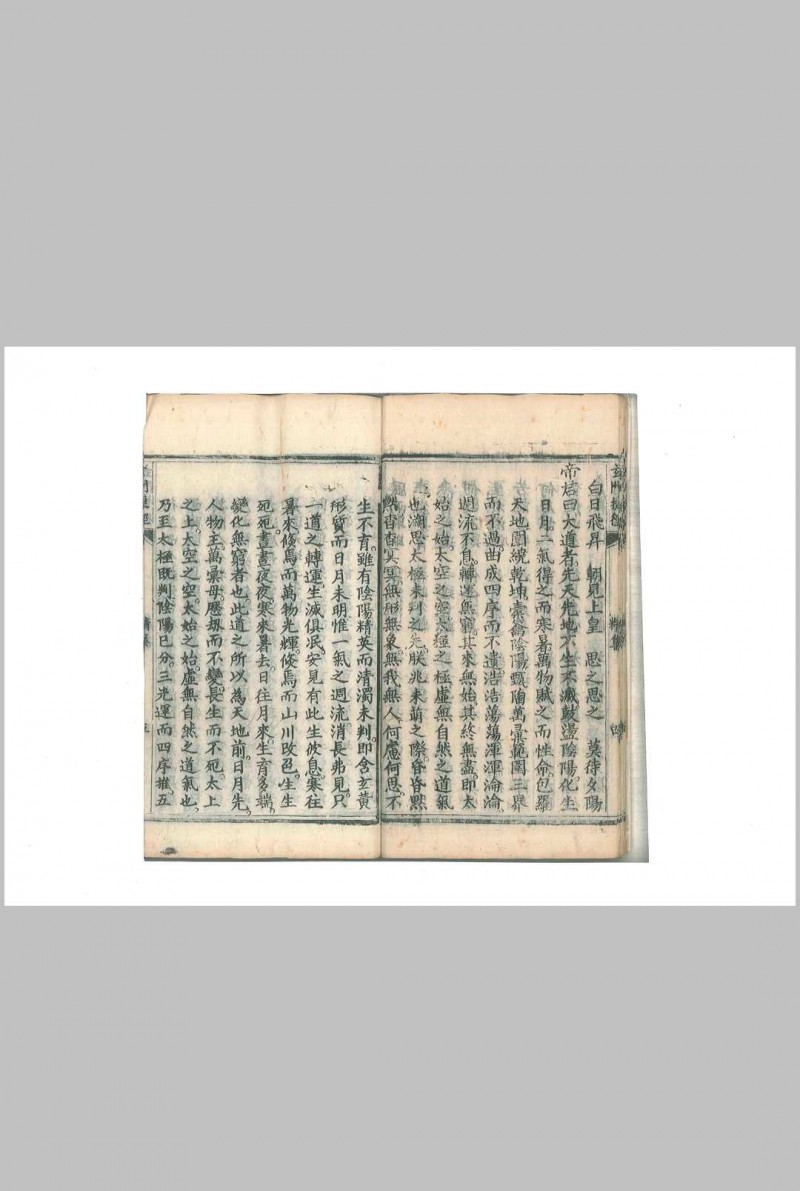 白日飛昇 朝見上皇 思之思之 莫待夕陽
帝君曰大道者先天先地不生不滅鼓盪陰陽化生
日月二氣得之而寒暑萬物賦之而性命包羅
天地圍繞乾坤橐籥陰陽甄陶萬彙範圍三界
而不過曲成四序而不遺浩浩蕩蕩渾渾淪淪
週流不息轉運無窮其來無始其終無盡即太
始之始太空之空太極之極虛無自然之道氣
也溯思太極未判之先朕兆未萌之際昏昏默
默杳杳冥冥無形無象無我無人何慮何思不
生不育雖有陰陽精英而清濁未判即含玄黃
形質而日月未明惟一氣之週流消長弗見只
一道之轉運生滅俱泯安見有此生彼息寒往
暑來倏焉而萬物光輝倏焉而山川改色生生
死死晝晝夜夜寒來暑去日往月來生育多端
變化無窮者也此道之所以為天地前日月先
人物主萬彙母歷刼而不變長生而不死太上
之上太空之空太始之始虛無自然之道氣也
乃至太極既判陰陽已分三光運而四序推五